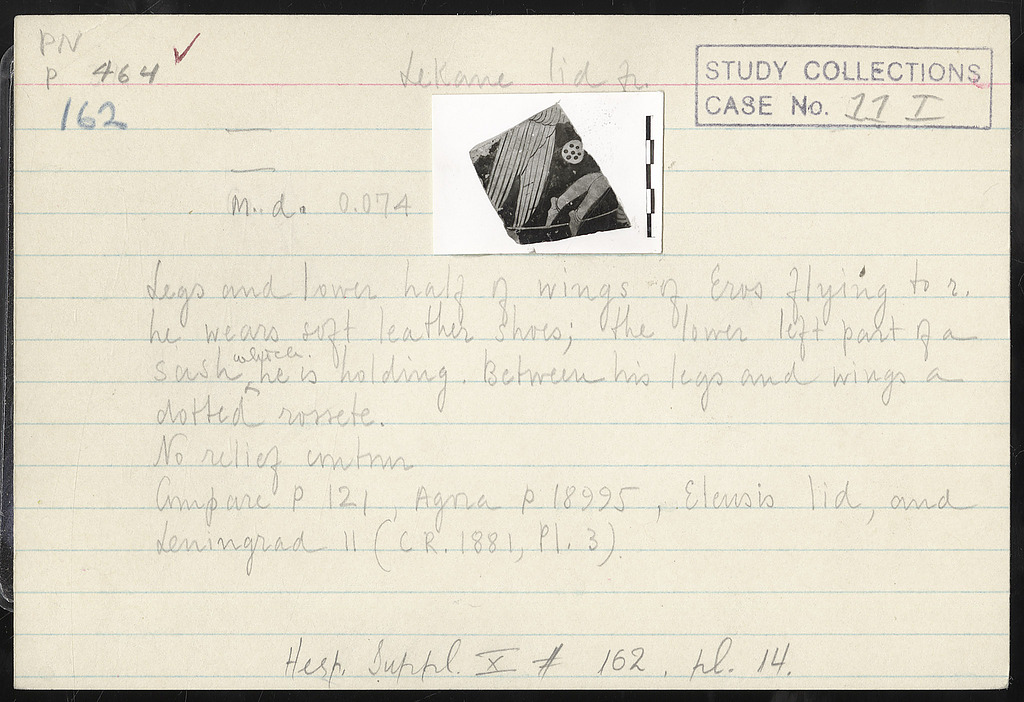 PN
P 464 ✓
162
Lekane lid fr.
STUDY COLLECTIONS
CASE No. 11 I
M. d. 0.074
Legs and lower half of wings of Eros flying to r.
he wears soft leather shoes; the lower left part of a
sash which he is holding. Between his legs and wings a
dotted rossete.
No relief contour
Compare P 121, Agora P 18995, Eleusis lid, and
Leningrad 11 (CR. 1881, Pl. 3)
Hesp. Suppl. X # 162. pl. 14.